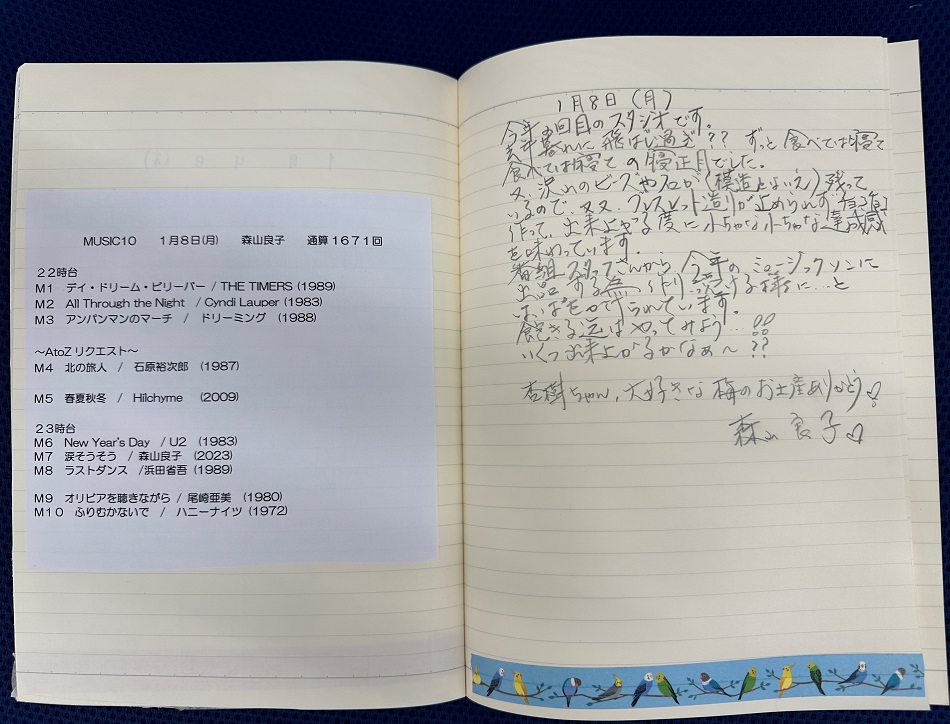 MUSIC10 1月8日(月) 森山良子 通算1671回
22時台
M1 デイ・ドリーム・ビリーバー / THE TIMERS (1989)
M2 All Through the Night / Cyndi Lauper (1983)
M3 アンパンマンのマーチ / ドリーミング (1988)
～AtoZ リクエスト～
M4 北の旅人 / 石原裕次郎 (1987)
M5 春夏秋冬 / Hilchyme (2009)
23時台
M6 New Year's Day / U2 (1983)
M7 涙そうそう / 森山良子 (2023)
M8 ラストダンス /浜田省吾 (1989)
M9 オリビアを聴きながら / 尾崎亜美 (1980)
M10 ふりむかないで / ハニーナイツ (1972)
1月8日(月)
今年 回目のスタジオです。
去年暮れに飛ばし過ぎ?? ずっと食べては寝て
食べては寝ての寝正月でした。
又、沢山のビーズや (模造とはいえ) 残って
いるので、又又、ブレスレット造りが止められず
作って、出来上がる度に小ちゃな小ちゃな達成感
を味わっています。
番組スタッフさんから、今年のミュージックソンに
出品する為、作り続ける様に…と
はっぱをかけられています。
飽きる迄はやってみよう…!!
いくつ出来上がるかなぁ～??
杏樹ちゃん、大好きな梅のお土産ありがとう♡
森山良子♡